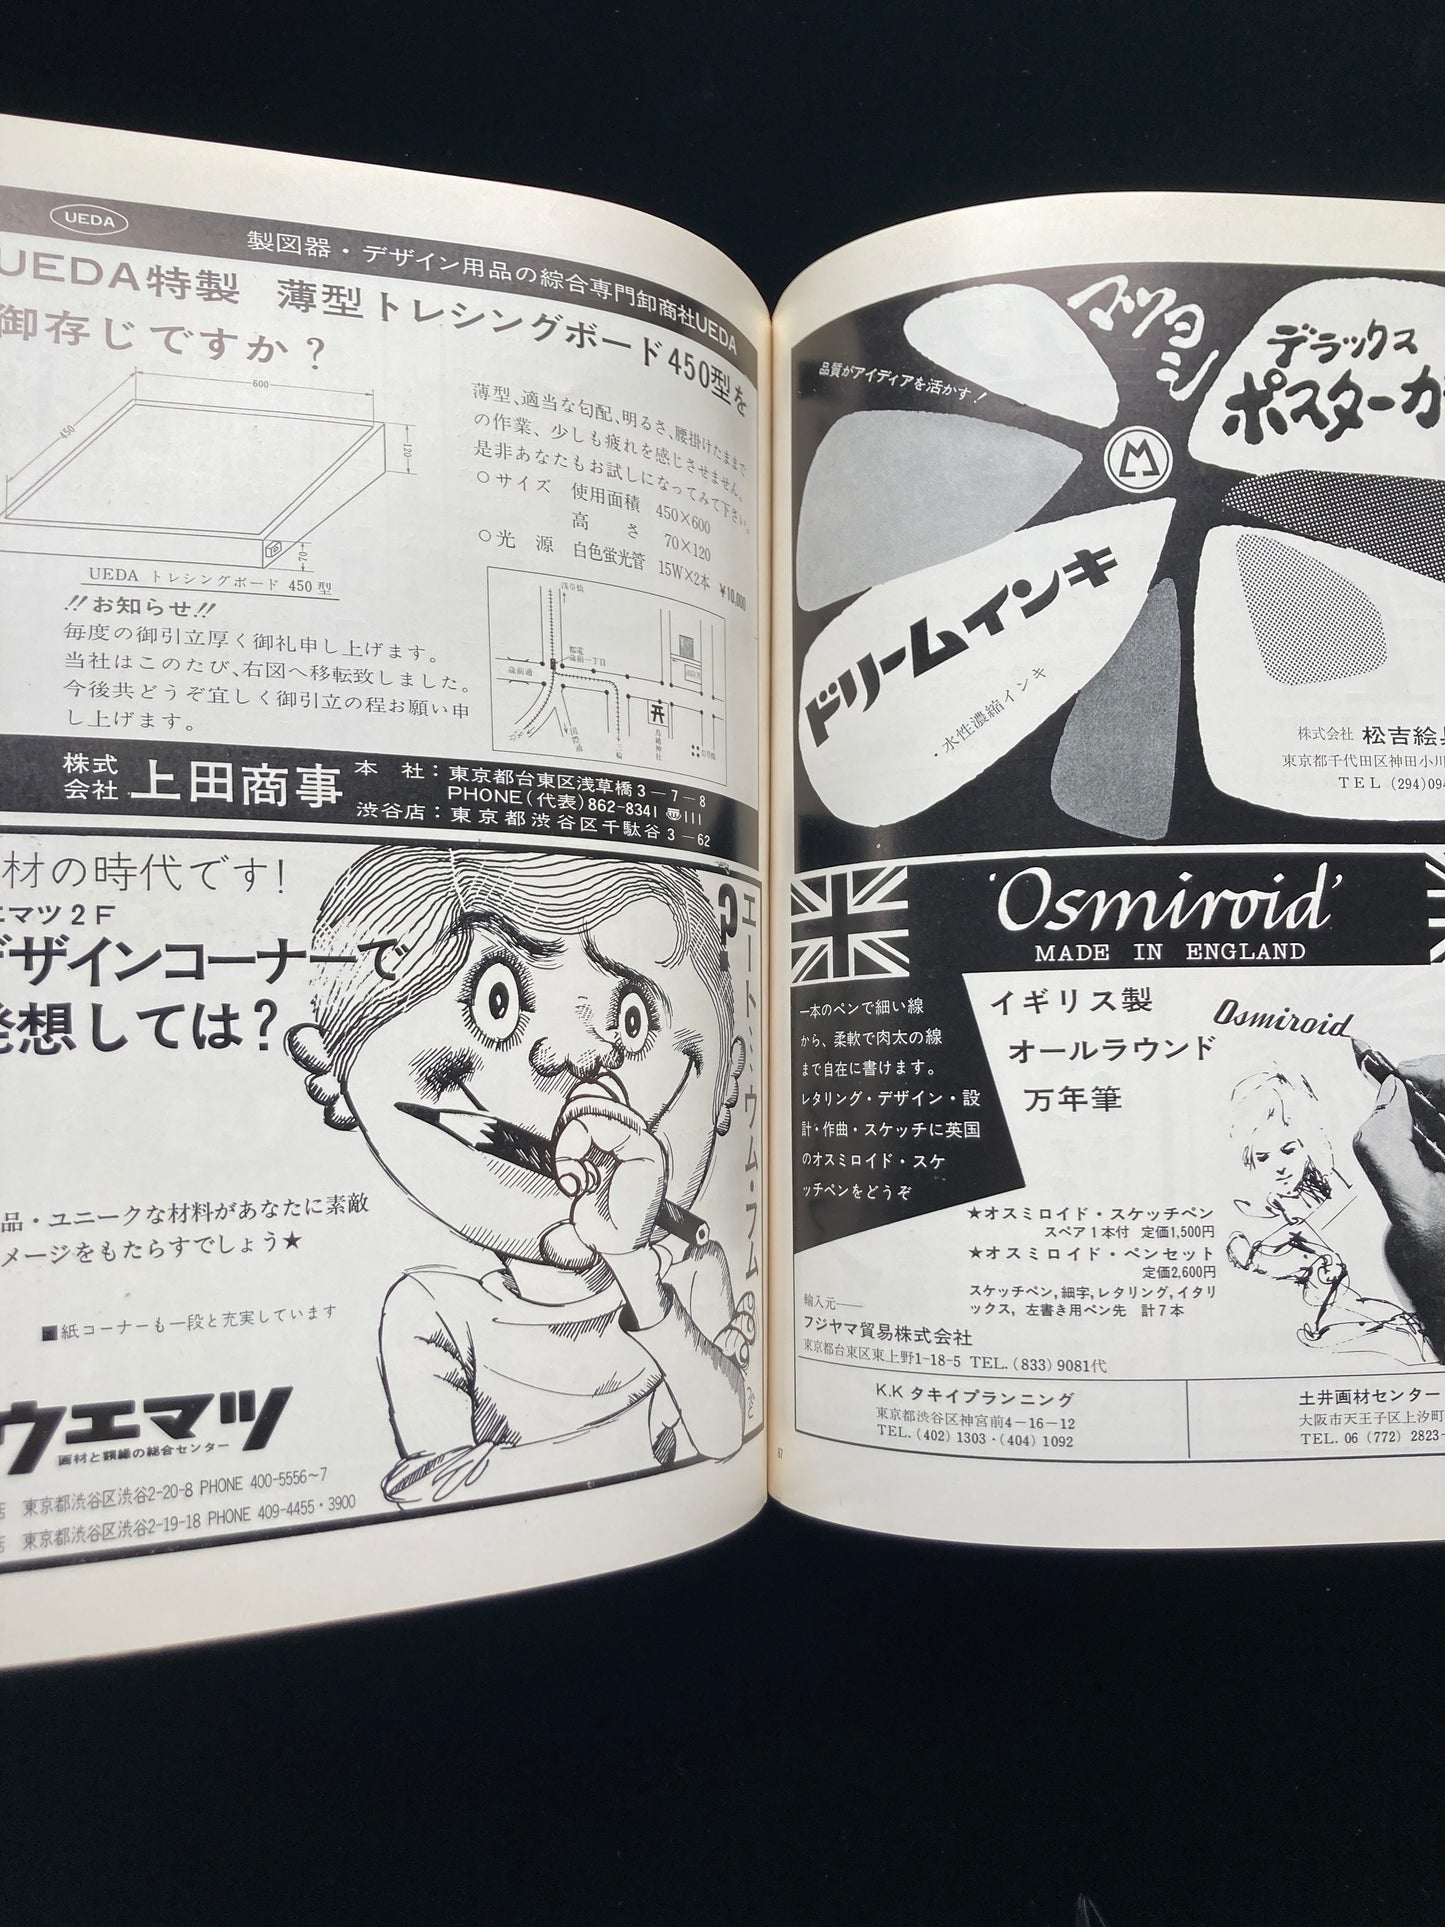 UEDA
製図器・デザイン用品の綜合専門卸商社UEDA
UEDA特製 薄型トレシングボード450型を
御存じですか?
600
450
120
70
UEDA トレシングボード 450 型
薄型、適当な匂配、明るさ、腰掛けたままで
の作業、少しも疲れを感じさせません。
是非あなたもお試しになってみて下さい。
○サイズ 使用面積 450×600
高さ 70×120
○光源 白色蛍光管 15W×2本 ¥10,000
!!お知らせ!!
毎度の御引立厚く御礼申し上げます。
当社はこのたび、右図へ移転致しました。
今後共どうぞ宜しく御引立の程お願い申
し上げます。
浅草橋
都電
蔵前一丁目
蔵前通
国際通
三輪
鳥越神社
株式会社 上田商事
本社:東京都台東区浅草橋3-7-8
PHONE(代表)862-8341 〜111
渋谷店:東京都渋谷区千駄谷3-62
材の時代です!
エマツ2F
デザインコーナーで
発想しては?
品・ユニークな材料があなたに素敵
メージをもたらすでしょう★
■紙コーナーも一段と充実しています
ウエマツ
画材と額縁の総合センター
店 東京都渋谷区渋谷2-20-8 PHONE 400-5556~7
店 東京都渋谷区渋谷2-19-18 PHONE 409-4455・3900
マツヨシ
品質がアイディアを活かす!
デラックス
ポスターカ
ドリームインキ
・水性濃縮インキ
株式会社 松吉絵
東京都千代田区神田小川
TEL (294)094
'Osmiroid'
MADE IN ENGLAND
一本のペンで細い線
から、柔軟で肉太の線
まで自在に書けます。
レタリング・デザイン・設
計・作曲・スケッチに英国
のオスミロイド・スケ
ッチペンをどうぞ
イギリス製
オールラウンド
万年筆
Osmiroid
★オスミロイド・スケッチペン
スペア1本付 定価1,500円
★オスミロイド・ペンセット
定価2,600円
スケッチペン,細字,レタリング,イタリ
ックス, 左書き用ペン先 計7本
輸入元——
フジヤマ貿易株式会社
東京都台東区東上野1-18-5 TEL.(833)9081代
K.K タキイプランニング
東京都渋谷区神宮前4-16-12
TEL.(402)1303・(404)1092
土井画材センター
大阪市天王子区上汐町
TEL. 06 (772) 2823-
87